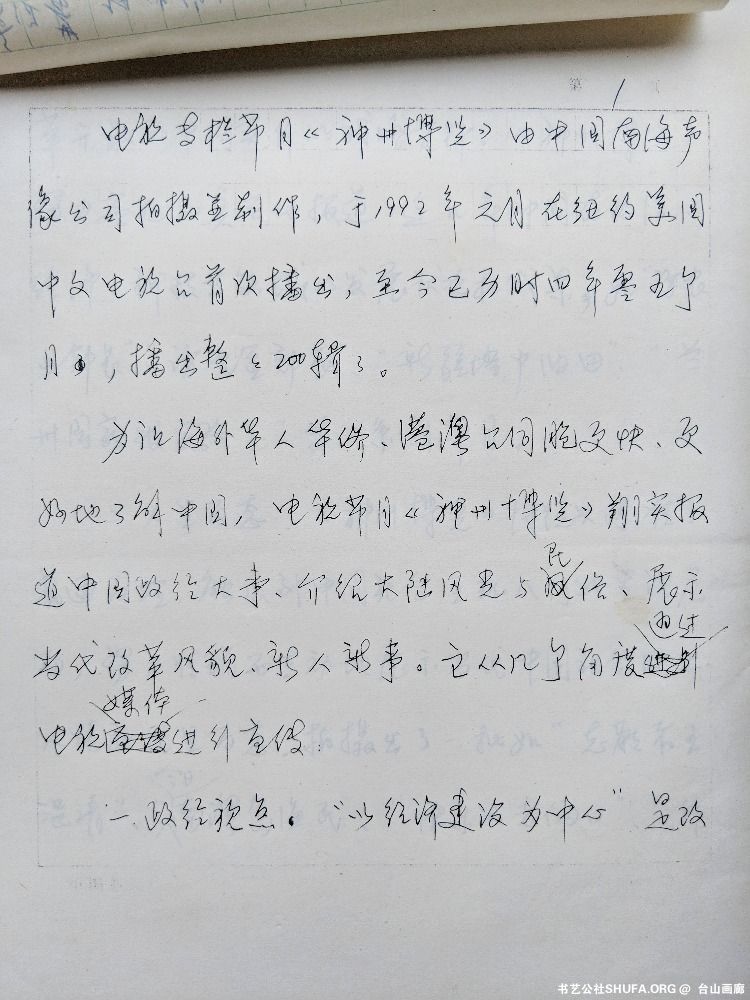 第 1 页
电视专栏节目《神州博览》由中国南海声
像公司拍摄并制作，于1992年元月在纽约美国
中文电视台首次播出，至今已历时四年零五个
月，播出整整200辑了。
为让海外华人华侨、港澳台同胞更快、更
好地了解中国，电视节目《神州博览》翔实报
道中国政经大事、介绍大陆风光与民俗、展示
当代改革风貌、新人新事。它从几个角度通过
电视媒体进行宣传：
一、政经视点。“以经济建设为中心”是改
书艺公社SHUFA.ORG @ 台山画廊